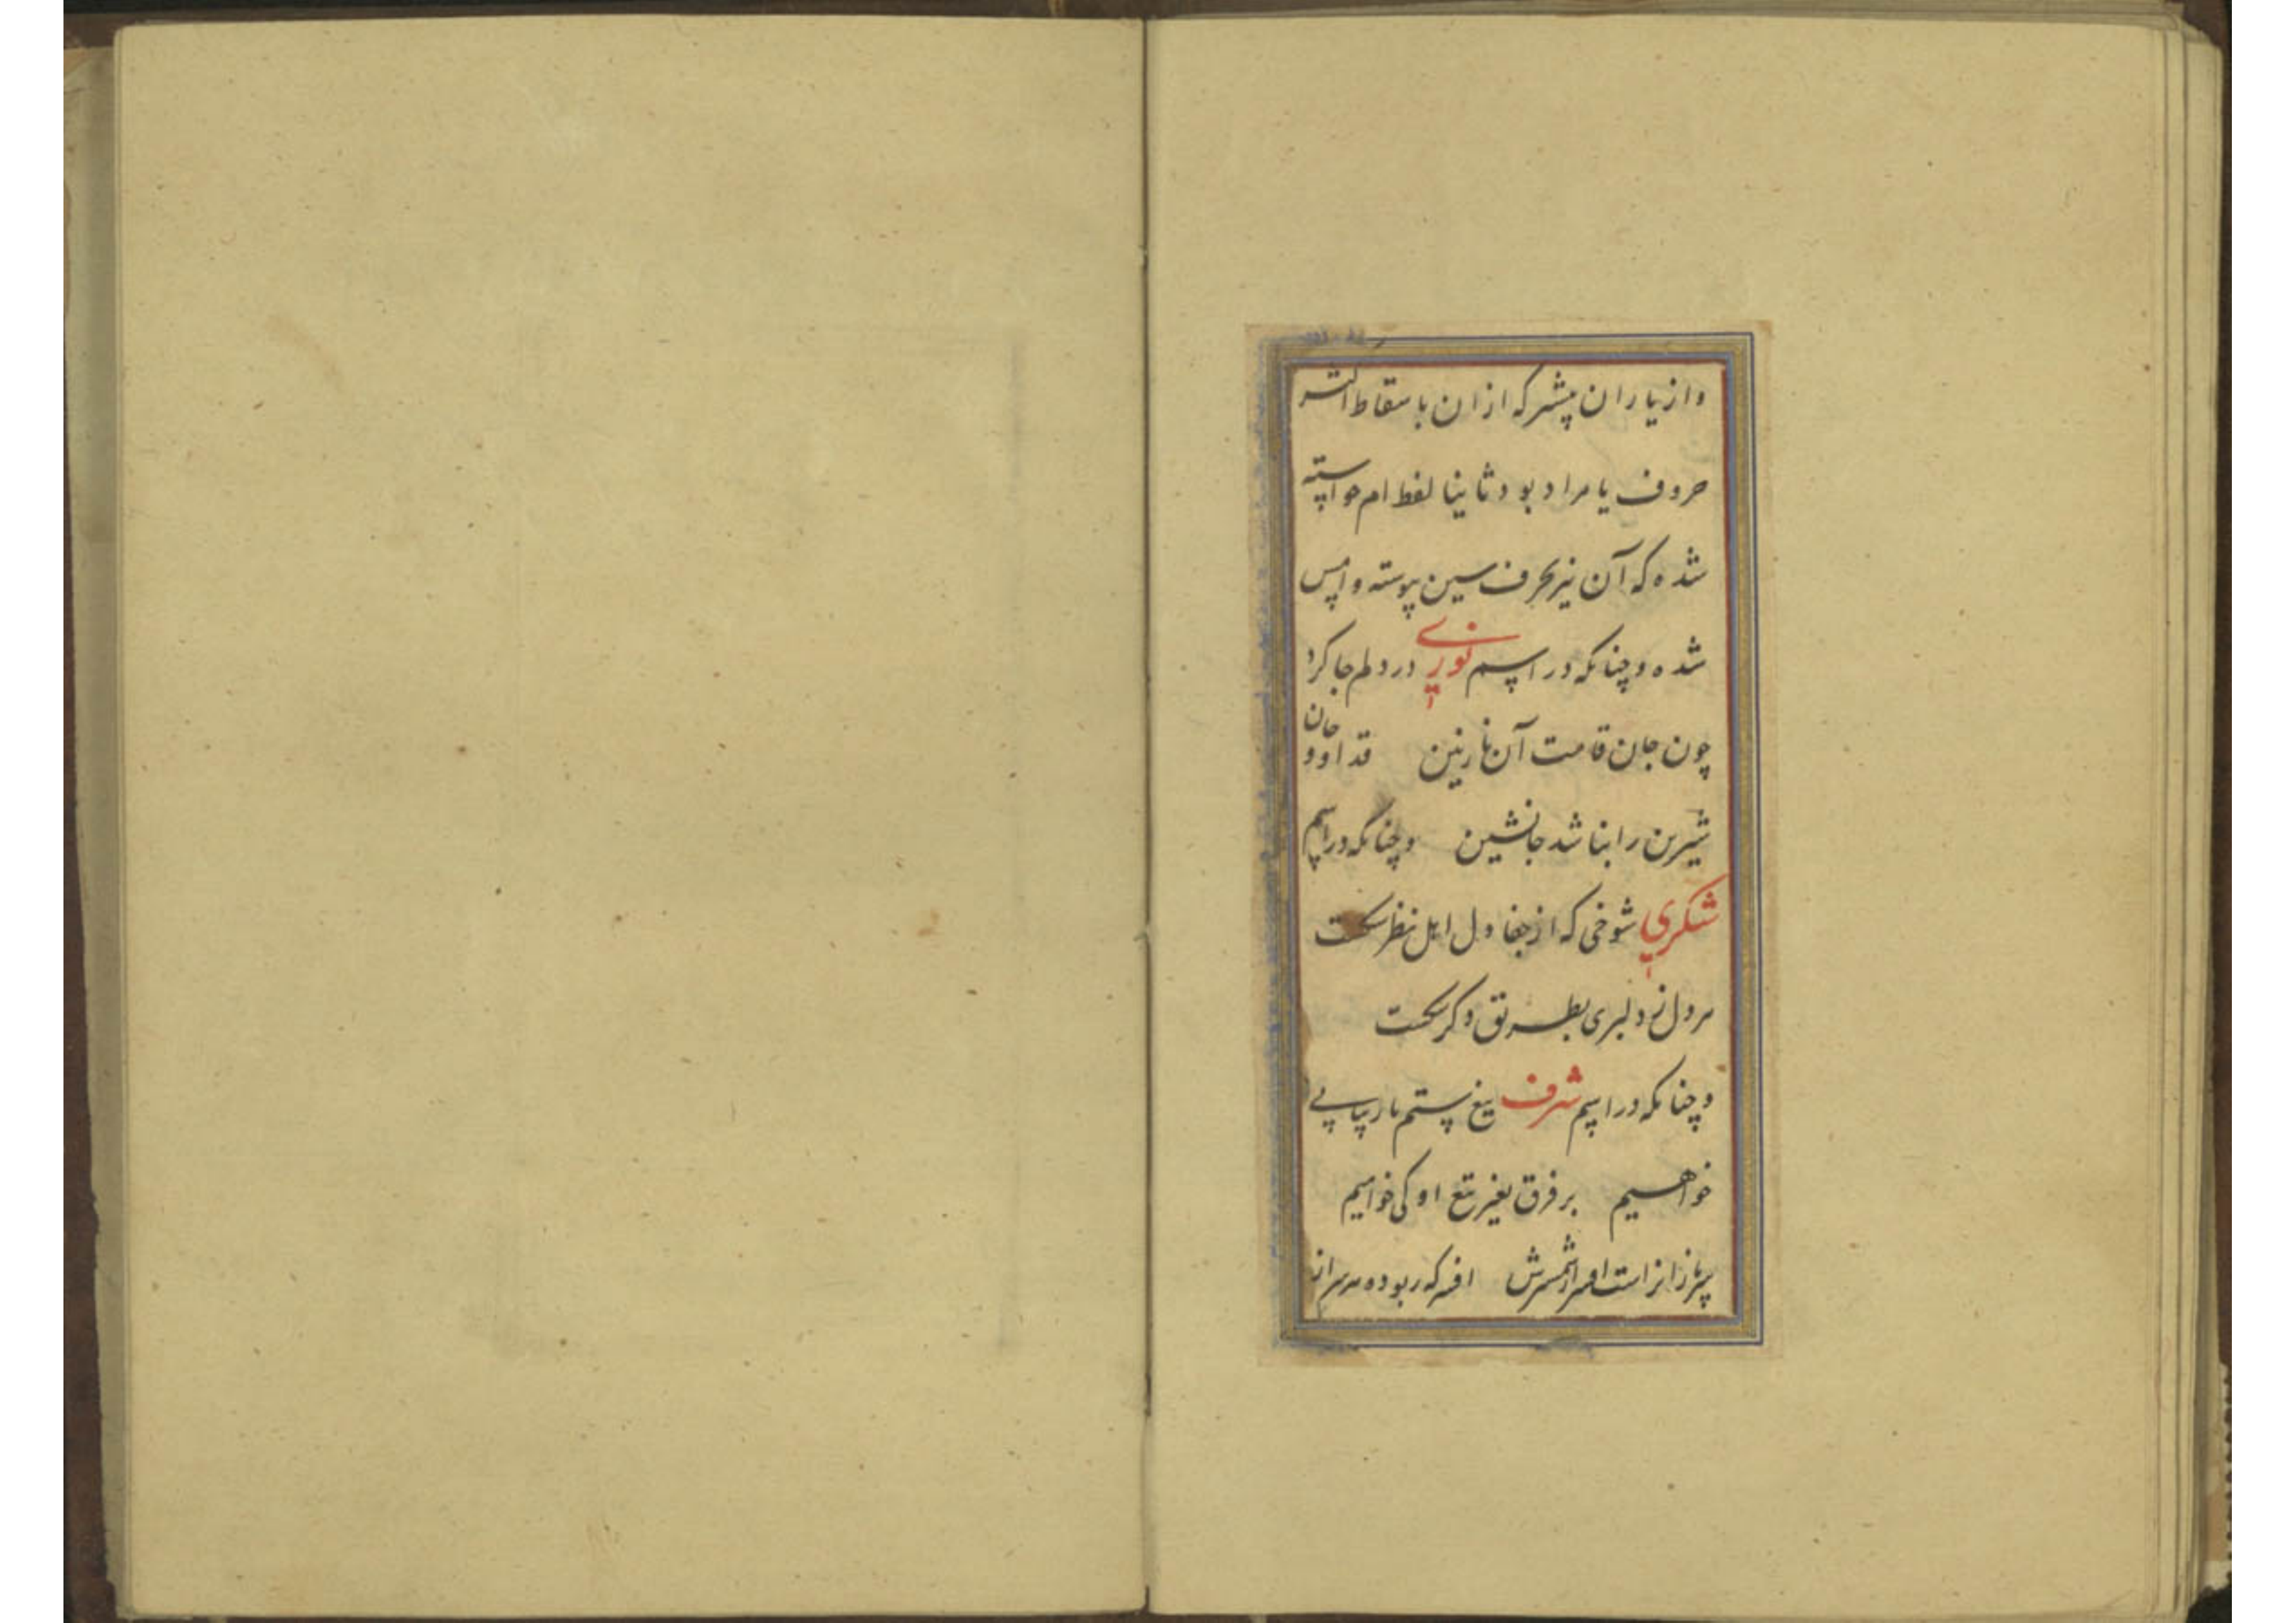 و از یاران پیشتر که ازان باسقاط اکثر
حروف یا مراد بود ثانیا لفظ ام خواسته
شده که آن نیز بحرف سین پیوسته و امس
شده و چنانکه در اسم نوری در دلم جا کرد
چون جان قامت آن نازنین قد او و جان
شیرین را بنا شد جانشین و چنانکه در اسم
شکری شوخی که از جفا دل اهل نظر شکست
هر دل ز دلبری بطریق دکر شکست
و چنانکه در اسم شرف تیغ ستم یار پیاپی
خواهیم بر فرق بغیر تیغ او کی خواهیم